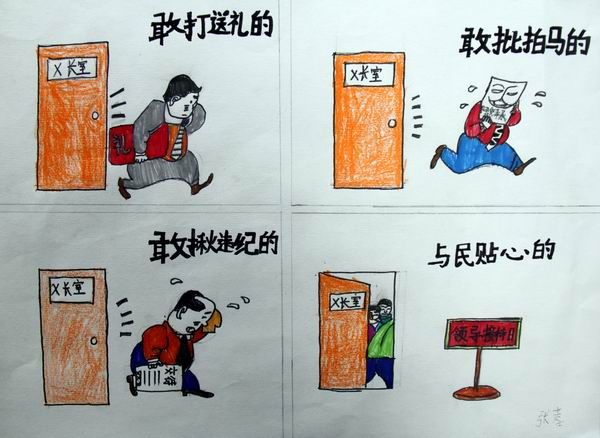 敢打送礼的
X长室
礼
敢批拍马的
X长室
敢揪违纪的
X长室
与民贴心的
X长室
领导接待日